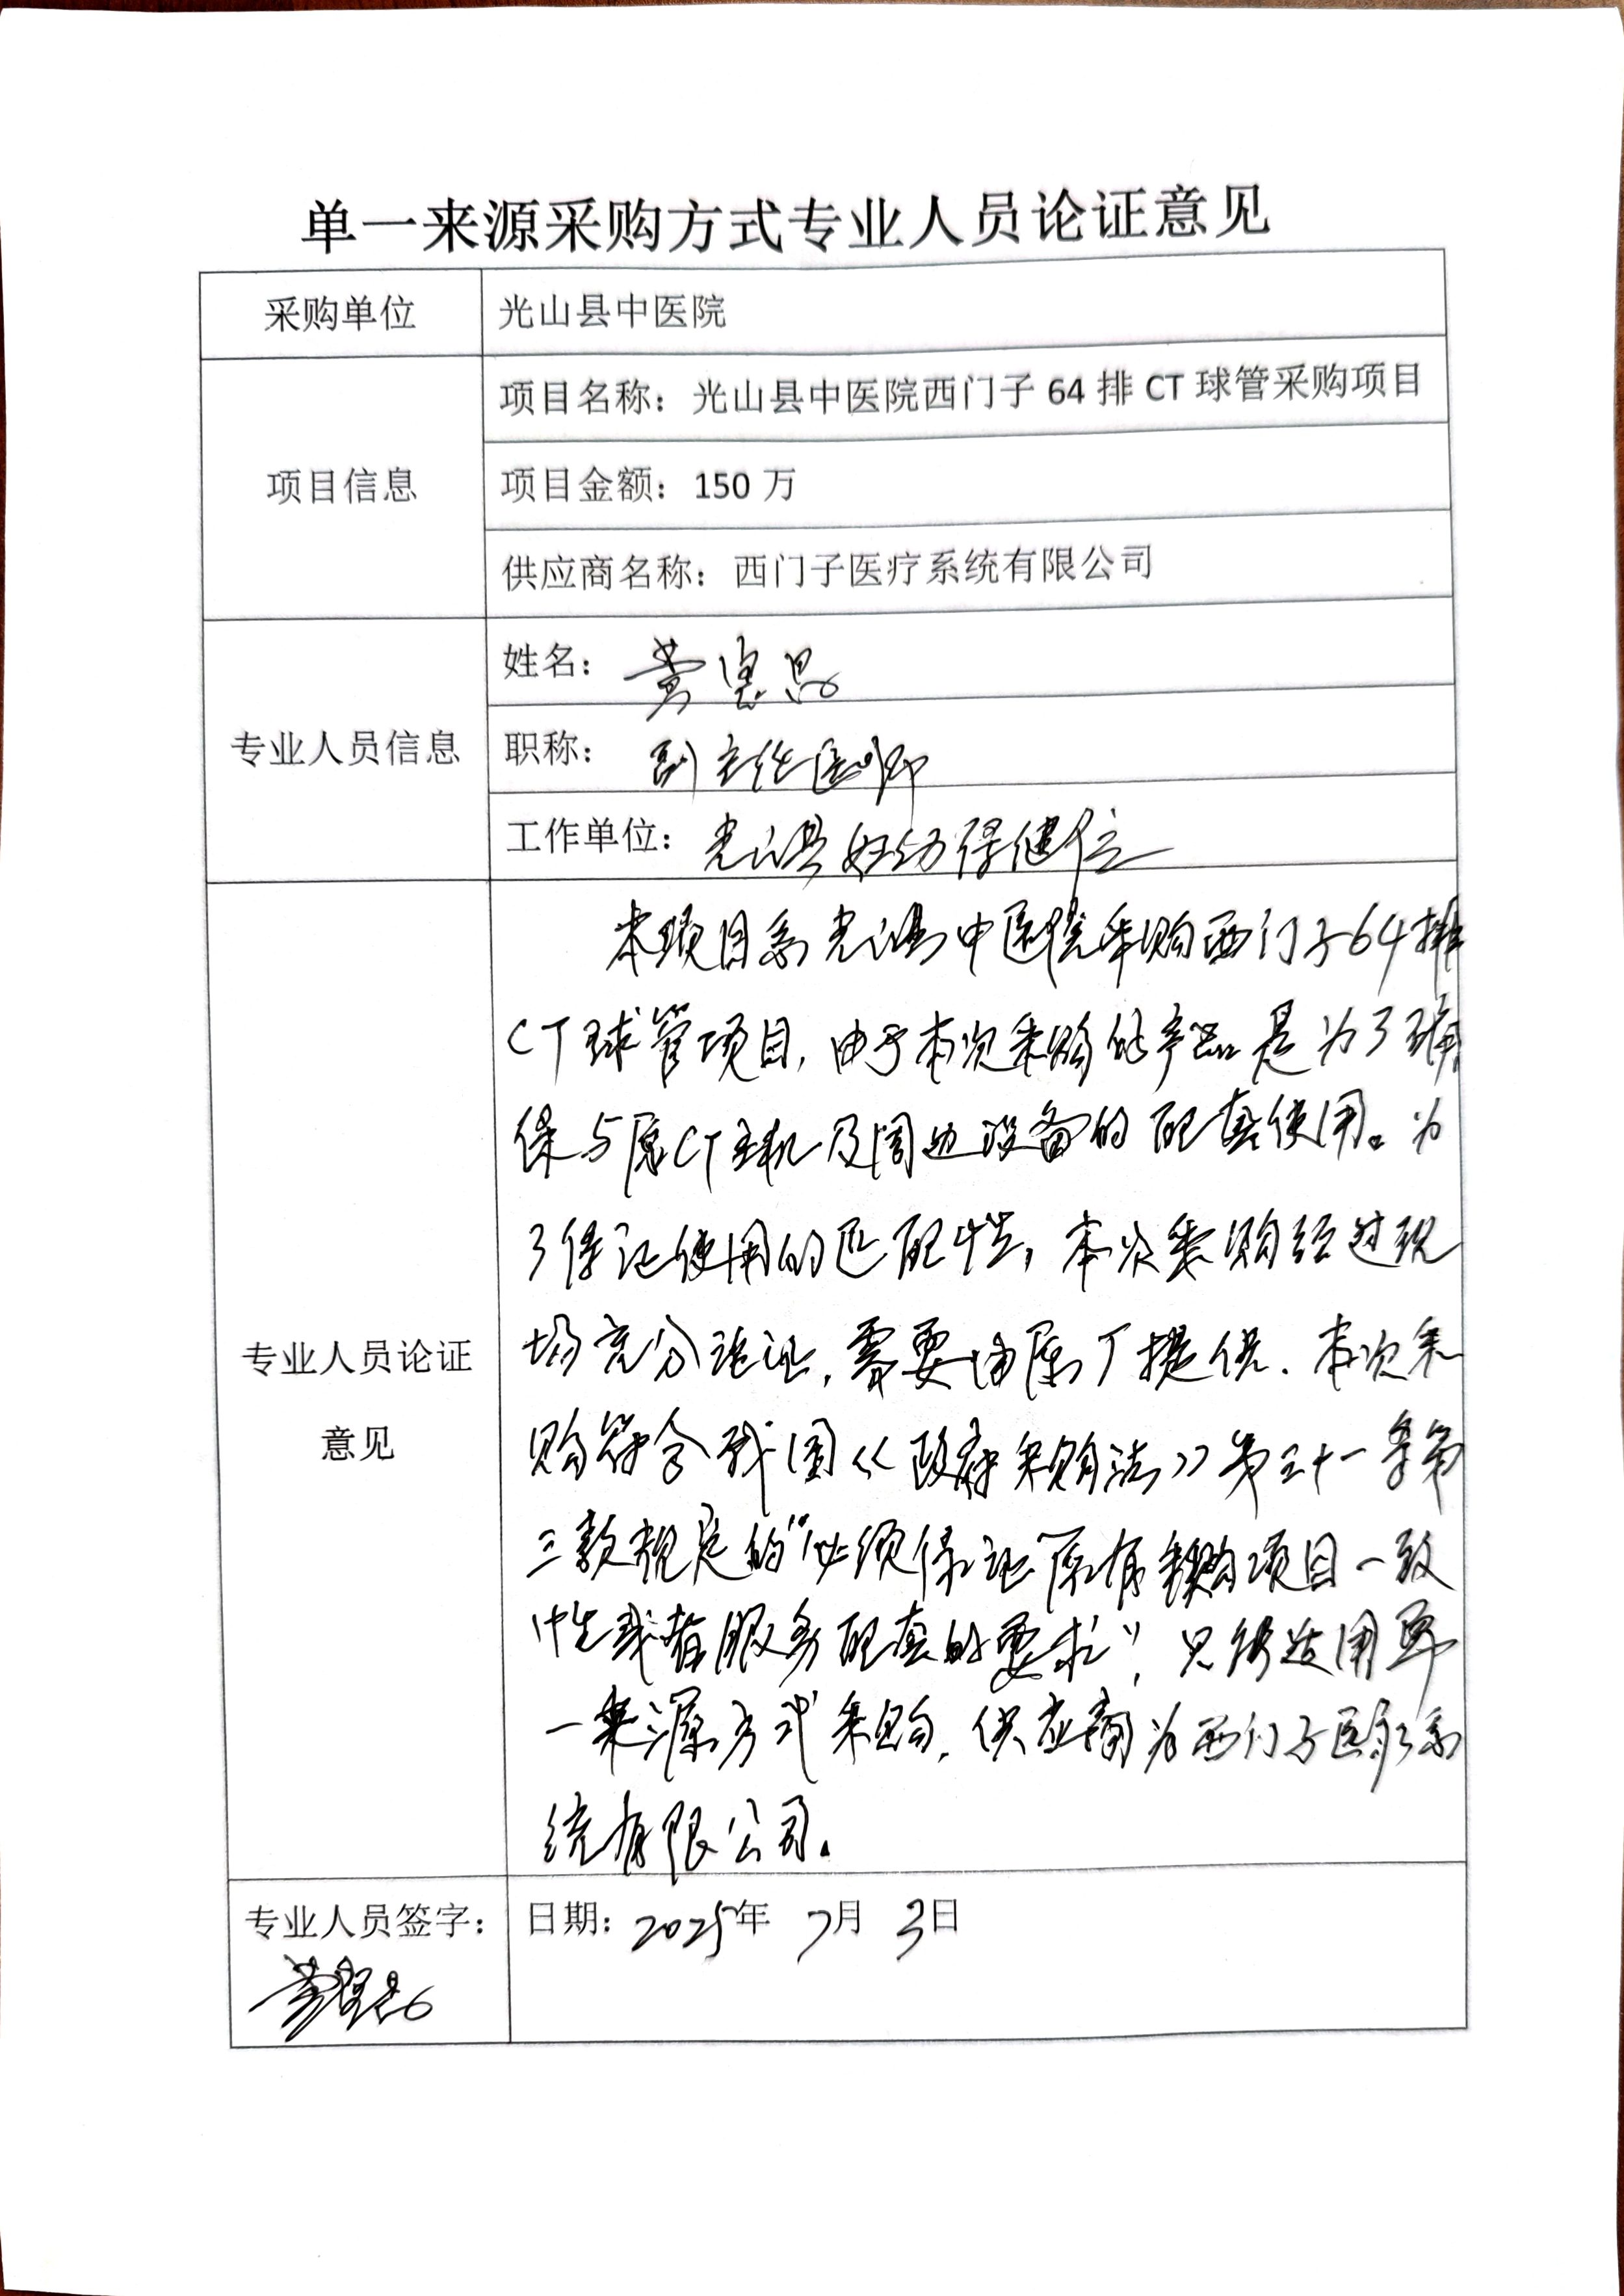 单一来源采购方式专业人员论证意见
采购单位
光山县中医院
项目信息
项目名称：光山县中医院西门子64排CT球管采购项目
项目金额：150万
供应商名称：西门子医疗系统有限公司
专业人员信息
姓名：黄
职称：副主任医师
工作单位：光山县妇幼保健
专业人员论证
意见
本项目系光山县中医院采购西门子64排
CT球管项目，由于本次采购的产品是为了确
保与原CT主机及周边设备的配套使用。为
了保证使用的匹配性，本次采购经过现
场充分论证，需要由原厂提供．本次采
购符合我国《政府采购法》第三十一条第
三款规定的“必须保证原有采购项目一致
性或者服务配套的要求”，只能适用单
一来源方式采购，供应商为西门子医疗系
统有限公司．
专业人员签字：
日期：2025年 7月 3日